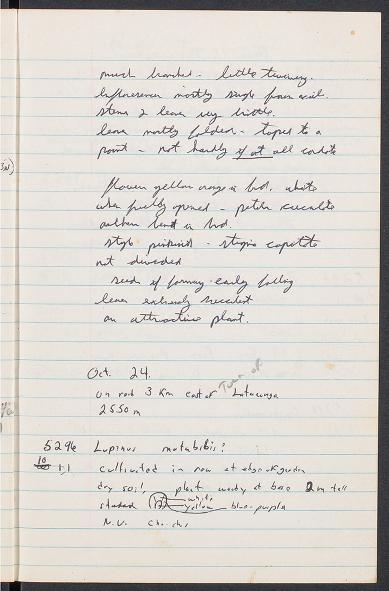 much branched - little twining.
Inflorescence mostly single from axil.
stems & leaves very brittle.
leaves mostly folded - tapes to a
point - not hardly if at all cordate
flowers yellow orange in bud, white
when fully opened - petals
anthers bent in bud.
style pinkish - stigma capitate
not divided
seeds if forming - early falling
leaves extremely succulent
an attractive plant.
Oct. 24.
on road 3 Km east of Town of Latacunga
2550 m
5296 Lupinus mutabilis?
10 cultivated in row at edge of garden
dry soil, plant woody at base 2m tall
white
yellow blue-purple
N.V. Cho-cho